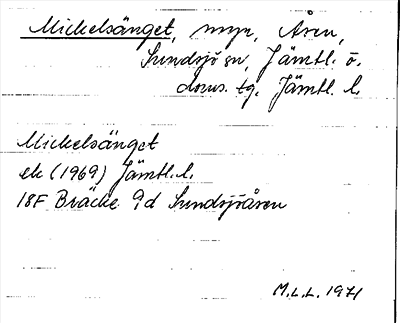 Mickelsänget, myr, Åsen,
Sundsjö sn, Jämtl. ö.
doms. tg. Jämtl. l.
Mickelsänget
ek (1969) Jämtl. l.
18F Bräcke 9d Sundsjöåsen
M.L.L. 1971